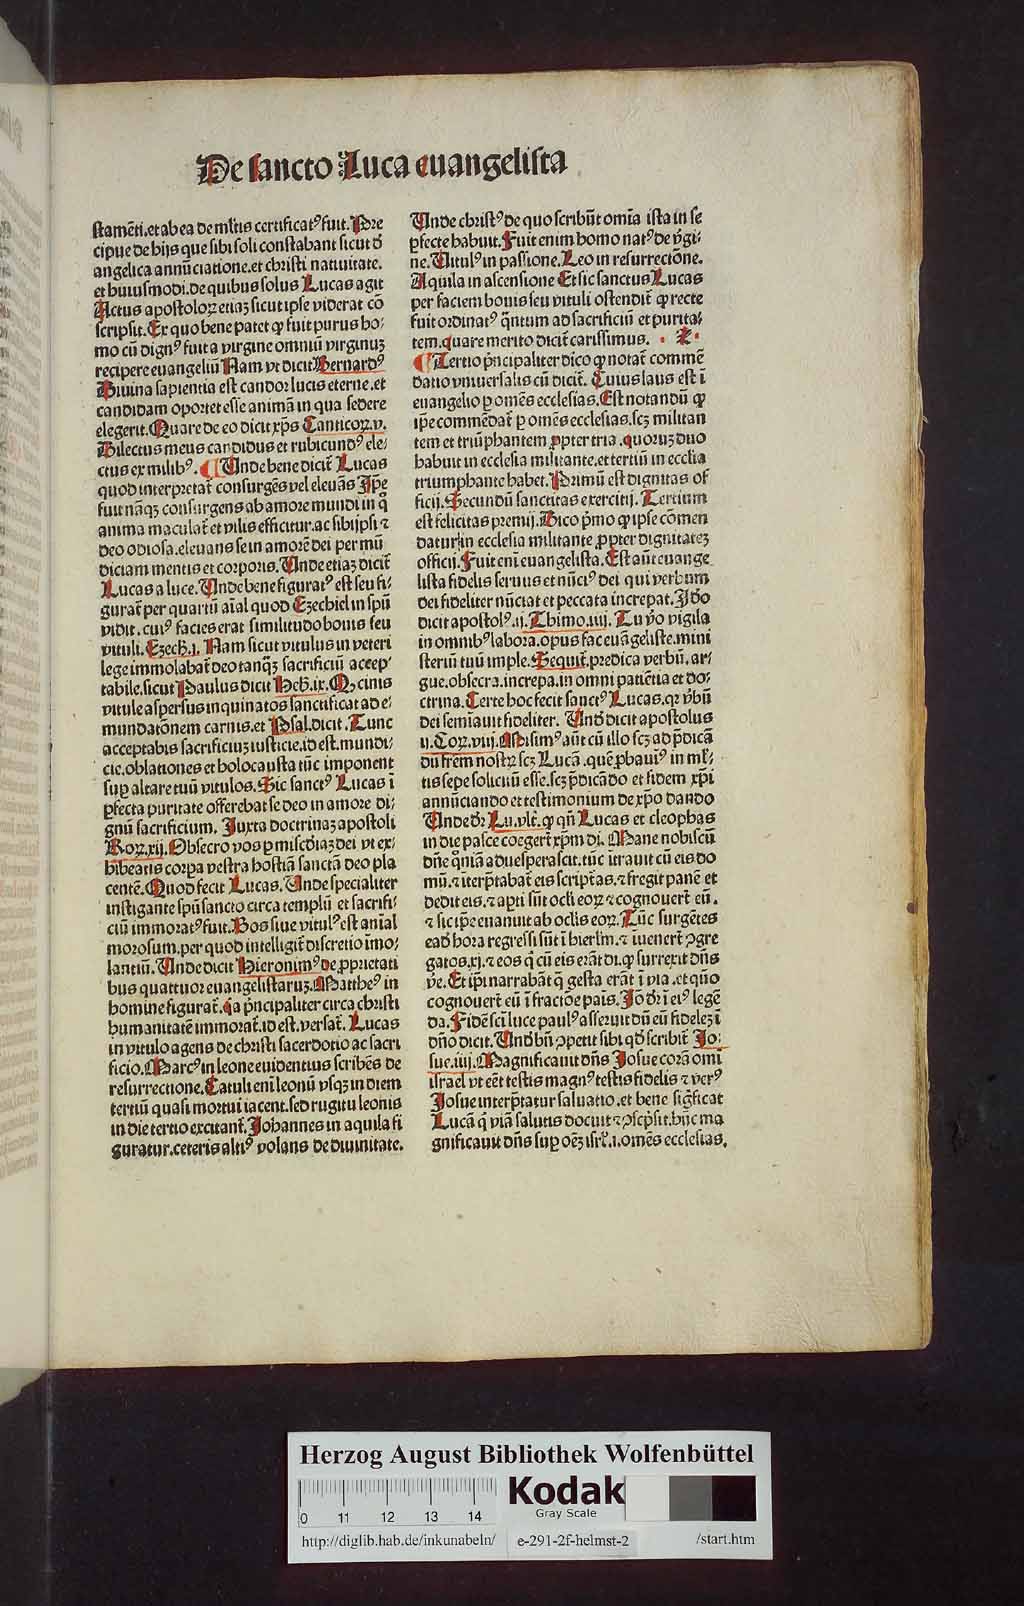 De sancto Luca euangelista
stamēti.et ab ea de mltis certificatꝰ fuit. Pre
cipue de hijs que sibi soli constabant sicut d̄
angelica annūciatione.et christi natiuitate.
et huiusmodi.de quibus solus Lucas agit
Actus apostoloꝝ etiaꝫ sicut ipse viderat cō
scripsit. Ex quo bene patet ꝙ fuit purus ho-
mo cū dignꝰ fuit a virgine omniū virginuꝫ
recipere euangeliū Nam vt dicit Bernardꝰ
Diuina sapientia est candor lucis eterne.et
candidam oportet esse animā in qua sedere
elegerit. Quare de eo dicit xp̄s Canticoꝝ.v.
Dilectus meus candidus et rubicundꝰ ele-
ctus ex milibꝰ. ¶ Unde bene dicit̄ Lucas
quod interpretat̄ consurgēs vel eleuās Ip̄e
fuit nāqꝫ consurgens ab amore mundi in q̄
anima maculat̄ et vilis efficitur.ac sibijpsi ⁊
deo odiosa.eleuans se in amorē dei per mū
diciam mentis et corporis. Unde etiaꝫ dicit̄
Lucas a luce. Unde bene figuratꝰ est seu fi-
gurat̄ per quartū aīal quod Ezechiel in spū
vidit.cuiꝰ facies erat similitudo bouis seu
vituli. Ezech.j. Nam sicut vitulus in veteri
lege immolabat̄ deo tanqꝫ sacrificiū accep-
tabile.sicut Paulus dicit Heb.ix. Qꝫ cinis
vitule aspersus inquinatos sanctificat ad e-
mundatōnem carnis.et Psal.dicit. Tunc
acceptabis sacrificiuꝫ iusticie.id est.mundi-
cie.oblationes et holocausta tūc imponent
suꝑ altare tuū vitulos. Sic sanctꝰ Lucas ī
ꝑfecta puritate offerebat se deo in amore di-
gnū sacrificium. Iuxta doctrinaꝫ apostoli
Roꝝ.xij. Obsecro vos ꝑ mīscdiaꝫ dei vt ex-
hibeatis corpa vestra hostiā sanctā deo pla
centē. Quod fecit Lucas. Unde specialiter
instigante spū sancto circa templū et sacrifi-
ciū immoratꝰ fuit. Bos siue vitulꝰ est anīal
morosum.per quod intelligit̄ discretio īmo-
lantiū. Unde dicit Hieronimꝰ de ꝓprietati
bus quattuor euangelistaruꝫ. Mattheꝰ in
homine figurat̄. Qa p̄ncipaliter circa christi
humanitatē immorat̄.id est.versat̄. Lucas
in vitulo agens de christi sacerdotio ac sacri
ficio. Marcꝰ in leone euidentius scribēs de
resurrectione. Catuli enī leonū vsqꝫ in diem
tertiū quasi mortui iacent.sed rugitu leonis
in die tertio excitant̄. Johannes in aquila fi
guratur.ceteris altiꝰ volans de diuinitate.
Unde christꝰ de quo scribūt omīa ista in se
ꝑfecte habuit. Fuit enim homo natꝰ de v̄gi-
ne. Uitulꝰ in passione. Leo in resurrectione.
Aquila in ascensione Et sic sanctus Lucas
per faciem bouis seu vituli ostendit̄ ꝙ recte
fuit ordinatꝰ q̄ntum ad sacrificiū et purita-
tem.quare merito dicit̄ carissimus.
¶ Tertio p̄ncipaliter dico ꝙ notat̄ commē
datio vniuersalis cū dicit̄. Cuius laus est ī
euangelio ꝑ omēs ecclesias. Est notandū ꝙ
ip̄e commēdat̄ ꝑ omēs ecclesias.scꝫ militan
tem et triūphantem ꝓpter tria.quoruꝫ duo
habuit in ecclesia militante.et tertiū in ecclīa
triumphante habet. Primū est dignitas of
ficij. Secundū sanctitas exercitij. Tertium
est felicitas premij. Dico p̄mo ꝙ ipse cōmen
datur in ecclesia militante ꝓpter dignitateꝫ
officij. Fuit enī euangelista. Est aūt euange
lista fidelis seruus et nūciꝰ dei qui verbum
dei fideliter nūciat et peccata increpat. Idō
dicit apostolꝰ.ij. Thimo.iiij. Tu v̄o vigila
in omnibꝰ labora.opus fac euāgeliste.mini
steriū tuū imple. Sequit̄.predica verbū.ar-
gue.obsecra.increpa.in omni patiētia et do-
ctrina. Certe hoc fecit sanctꝰ Lucas.qꝛ v̄bū
dei semīauit fideliter. Und̄ dicit apostolus
ij. Coꝝ.viij. Misimꝰ aūt cū illo scꝫ ad p̄dicā
dū frēm nostꝝ scꝫ Lucā.quē ꝓbauiꝰ in ml̄-
tis sepe soliciū esse.scꝫ p̄dicādo et fidem xp̄i
annūciando et testimonium de xp̄o dando
Unde d̄r Lu.vlt̄. ꝙ qn̄ Lucas et cleophas
in die pasce coegert̄ xp̄m di. Mane nobiscū
dn̄e q̄niā aduesperascit.tūc ītrauit cū eis do
mū.⁊ īterp̄tabat̄ eis script̄as.⁊ fregit panē et
dedit eis.⁊ apti sūt oclī eoꝝ ⁊ cognouert̄ eū.
⁊ sic ip̄e euanuit ab oclīs eoꝝ. Tūc surgētes
ead̄ hora regressi sūt ī hierlm̄.⁊ iuenert̄ ꝯgre
gatos.xj.⁊ eos q̄ cū eis erāt di.ꝙ surrexit dn̄s
v̄e. Et ip̄i narrabāt q̄ gesta erāt ī via.et qūo
cognouert̄ eū ī fractiōe pais. Iō d̄r ī eiꝰ legē
da. Fidē scī luce paulꝰ asseruit dū eū fidelez ī
dn̄o dicit. Und̄ bn̄ ꝯpetit sibi qd̄ scribit̄ Jo-
sue.iiij. Magnificauit dn̄s Josue corā omī
israel vt eēt testis magnꝰ testis fidelis ⁊ verꝰ
Josue interp̄tatur saluatio.et bene siḡficat
Lucā q̄ viā salutis docuit ⁊ ꝯscpsit.hūc ma
gnificauit dn̄s suꝑ oēꝫ isrl̄.i.omēs ecclesias.
Herzog August Bibliothek Wolfenbüttel
0 11 12 13 14
Kodak
Gray Scale
http://diglib.hab.de/inkunabeln/ e-291-2f-helmst-2 /start.htm